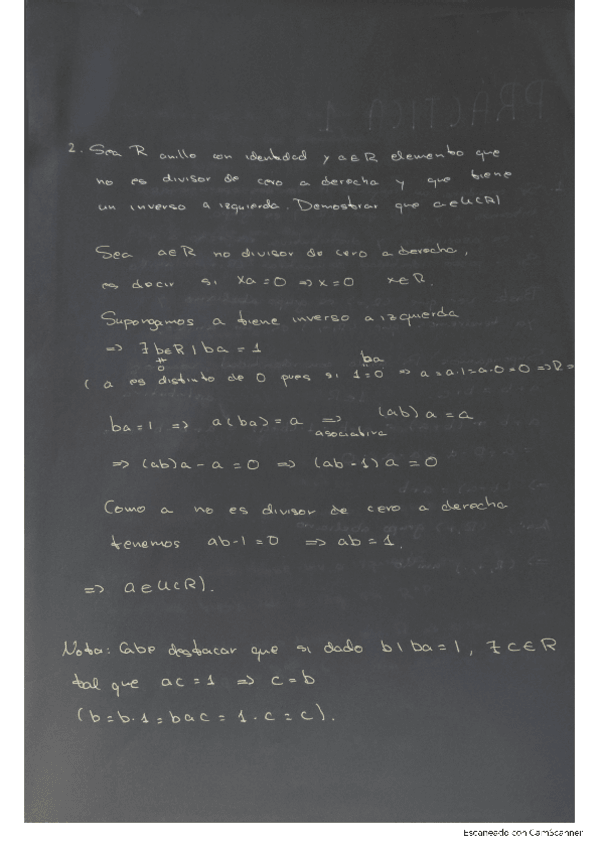 PRÁCTICA 1
2. Sea R anillo con identidad y a∈R elemento que
no es divisor de cero a derecha y que tiene
un inverso a izquierda. Demostrar que a∈U(R)
Sea a∈R no divisor de cero a derecha,
es decir si xa=0 ⇒ x=0 x∈R.
Supongamos a tiene inverso a izquierda
⇒ ∃ b∈R | ba = 1
≠ 0
ba
(a es distinto de 0 pues si 1=0 ⇒ a=a·1=a·0=0 ⇒ R=
ba=1 ⇒ a(ba)=a ⇒ (ab)a=a
asociativa
⇒ (ab)a-a=0 ⇒ (ab-1)a=0
Como a no es divisor de cero a derecha
tenemos ab-1=0 ⇒ ab=1.
⇒ a∈U(R).
Nota: Cabe destacar que si dado b | ba=1, ∃ c∈R
tal que ac=1 ⇒ c=b
(b=b·1=bac=1·c=c).
Escaneado con CamScanner